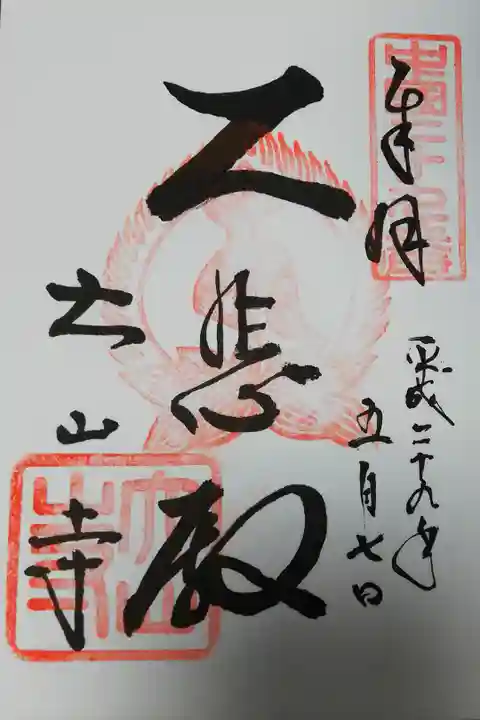 奉拝
平成二十九年
五月七日
大悲殿
大山寺